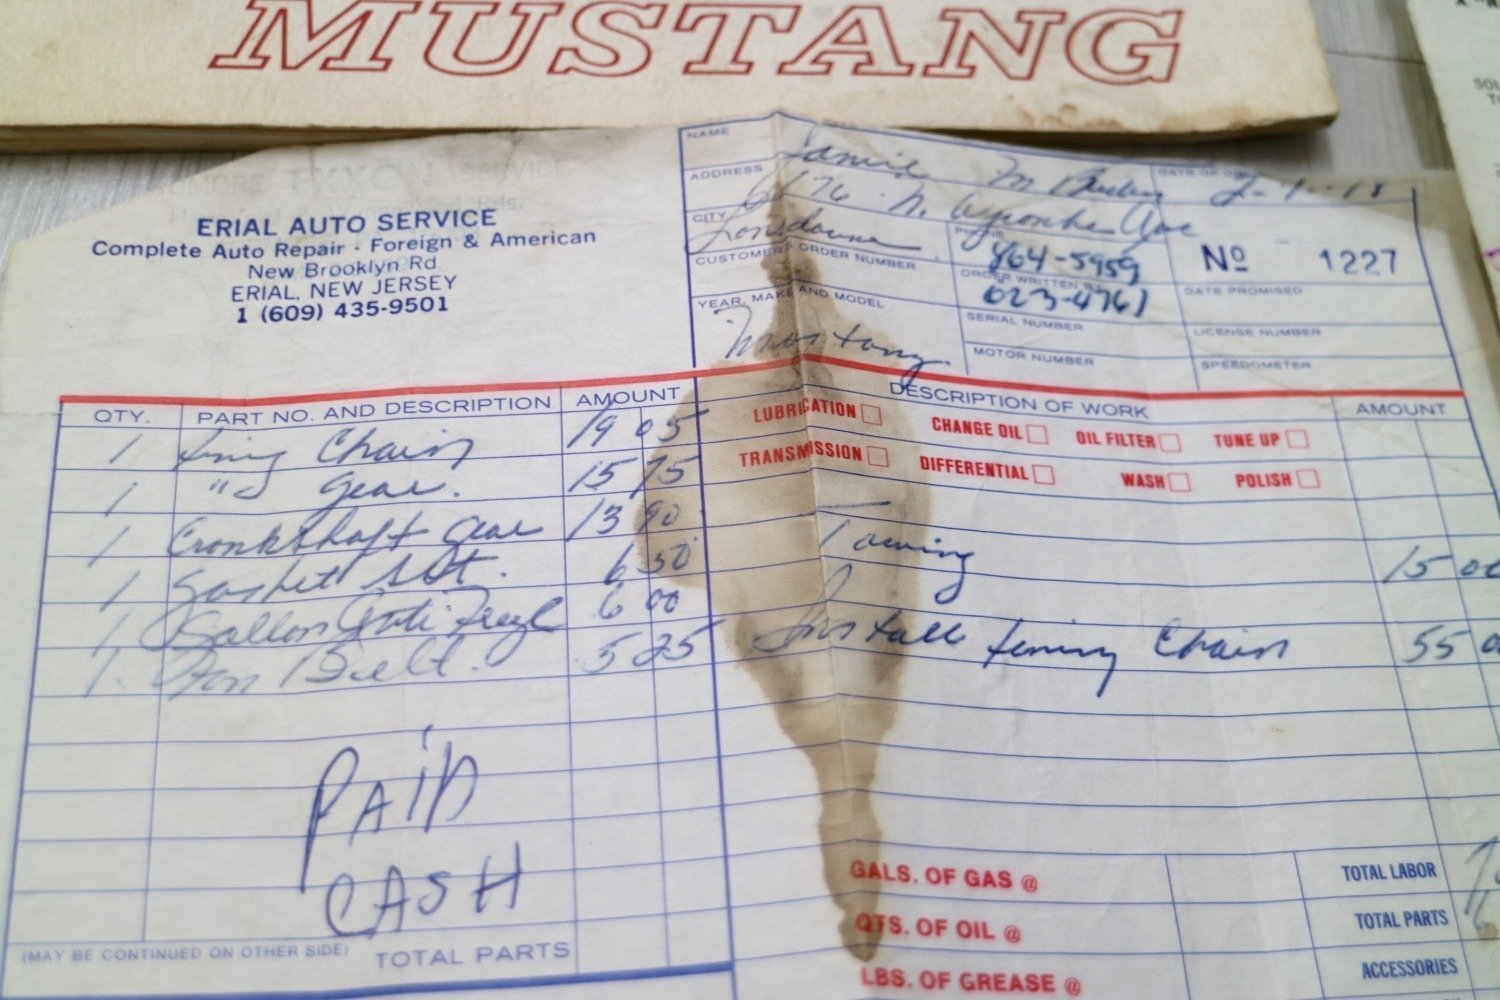 MUSTANG
ERIAL AUTO SERVICE
Complete Auto Repair - Foreign & American
New Brooklyn Rd.
ERIAL, NEW JERSEY
1 (609) 435-9501
NAME Jamie M
ADDRESS 6676 N. Wycombe Ave
CITY Lansdowne
PHONE 864-5959
CUSTOMER'S ORDER NUMBER
ORDER WRITTEN BY 623-4761
YEAR, MAKE AND MODEL
Mustang
SERIAL NUMBER
MOTOR NUMBER
DATE OF
No 1227
DATE PROMISED
LICENSE NUMBER
SPEEDOMETER
QTY. PART NO. AND DESCRIPTION AMOUNT
1 timing Chain 19 05
1 " Gear. 15 75
1 Crankshaft Gear 13 90
1 Gasket Set. 6 50
1 Gallon Anti Freeze 6 00
1. Fan Belt. 5 25
PAID
CASH
(MAY BE CONTINUED ON OTHER SIDE) TOTAL PARTS
DESCRIPTION OF WORK AMOUNT
LUBRICATION CHANGE OIL OIL FILTER TUNE UP
TRANSMISSION DIFFERENTIAL WASH POLISH
Towing 15 00
Install timing Chain 55
GALS. OF GAS @ TOTAL LABOR
QTS. OF OIL @ TOTAL PARTS
LBS. OF GREASE @ ACCESSORIES